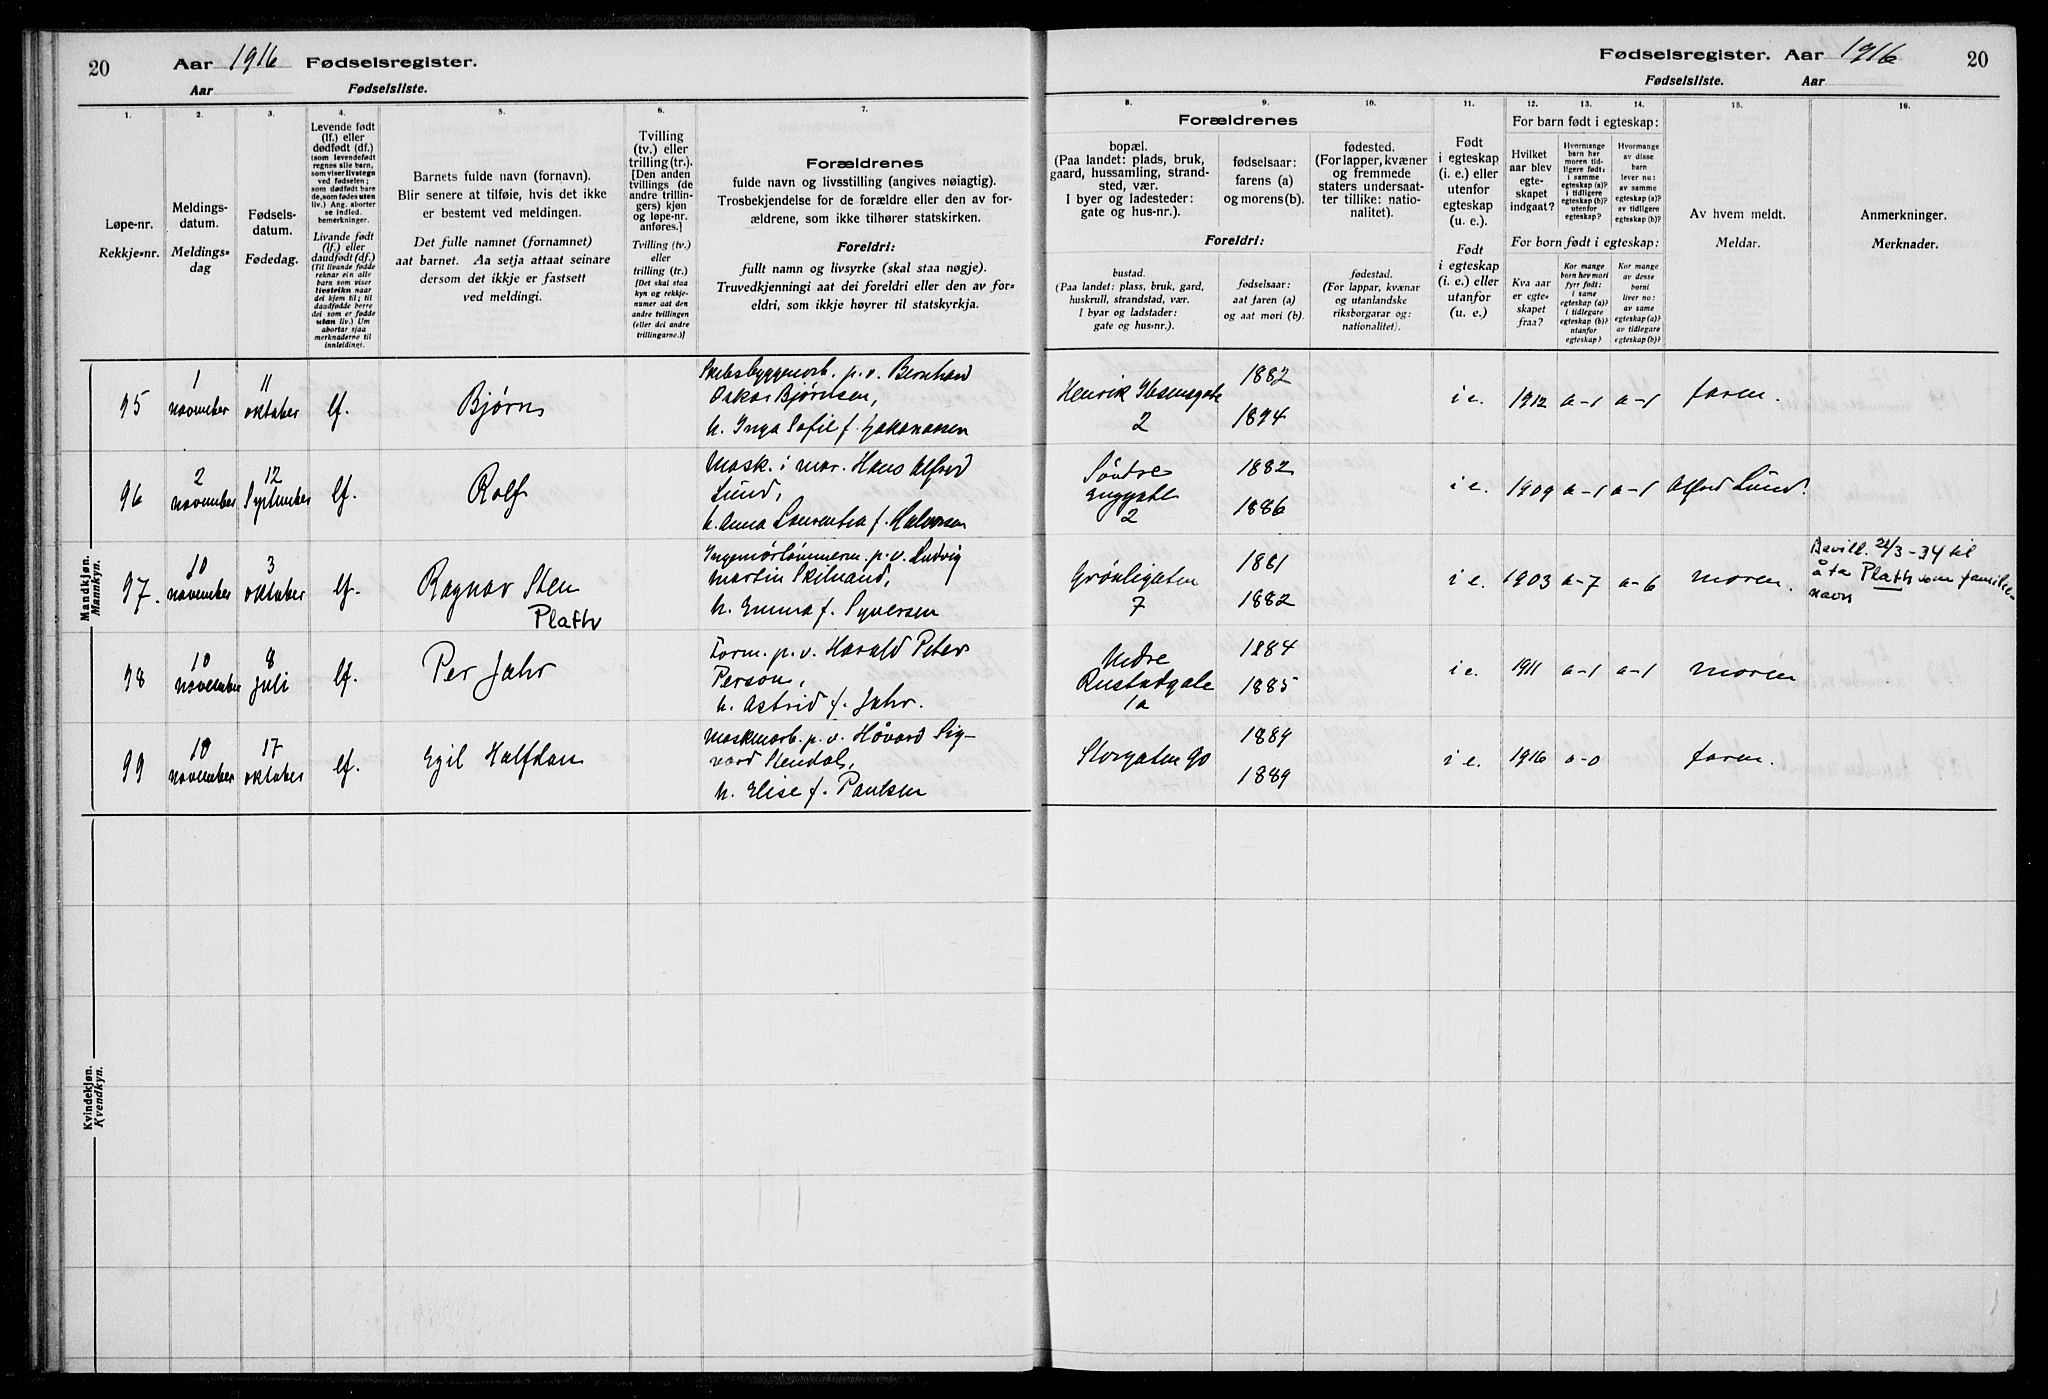 20
Aar 1916 Fødselsregister.
Aar Fødselsliste.
1.
2.
3.
4.
5.
6.
7.
Løpe-nr.
Rekkje-nr.
Meldings-
datum.
Meldings-
dag
Fødsels-
datum.
Fødedag.
Levende født
(lf.) eller
dødfødt (df.)
(som levendefødt
regnes alle barn,
som viser livstegn
ved fødselen;
som dødfødt bare
de, som fødes uten
liv.) Ang. aborter
se indled.
bemerkninger.
Livande født
(lf.) eller
daudfødt (df.)
(Til livande fødde
reknar ein alle
barn som viser
livsteikn naar
dei kjem til; til
daadfødde berre
dei som er fødde
utan liv.) Um
abortar sjaa
merknaderne til
innleidingi.
Barnets fulde navn (fornavn).
Blir senere at tilføie, hvis det ikke
er bestemt ved meldingen.
Det fulle namnet (fornamnet)
aat barnet. Aa setja attaat seinare
dersom det ikkje er fastsett
ved meldingi.
Tvilling
(tv.) eller
trilling (tr.).
[Den anden
tvillings (de
andre trillin-
gers) kjøn
og løpe-nr.
anføres.]
Tvilling (tv.)
eller
trilling (tr.)
[Det skal staa
kyn og rekkje-
numer aat den
andre tvillingen
(eller dei andre
trillingarne.)]
Forældrenes
fulde navn og livsstilling (angives nøiagtig).
Trosbekjendelse for de forældre eller den av for-
ældrene, som ikke tilhører statskirken.
Foreldri:
fullt namn og livsyrke (skal staa nøgje).
Truvedkjenningi aat dei foreldri eller den av for-
eldri, som ikkje høyrer til statskyrkja.
Mandkjøn.
Mannkyn.
95
1
november
11
oktober
lf.
Bjørn
Skibsbyggerarb. p.v. Bernhard
Oskar Bjørnsen,
h. Inga Sofie f. Johannesen
96
2
november
12
September
lf.
Rolf
Mask. i mar. Hans Alfred
Lund,
h. Anna Laurentea f. Halvorsen
97.
10
november
3
oktober
lf.
Ragnar Sten
Plath
p.v. Ludvig
Martin Skilnand,
h. Emma f. Syversen
98
10
november
8
juli
lf.
Per Jahr
Form. p.v. Harald Peter
Person,
h. Astrid f. Jahr.
99
10
november
17
oktober
lf.
Egil Halfdan
Maskinarb. p.v. Håvard Sig-
vard Stendal,
h. Elise f. Paulsen
Kvindekjøn.
Kvendkyn.
Fødselsregister. Aar 1916
20
Fødselsliste. Aar
8.
9.
10.
11.
12.
13.
14.
15.
16.
Forældrenes
bopæl.
(Paa landet: plads, bruk,
gaard, hussamling, strand-
sted, vær.
I byer og ladesteder:
gate og hus-nr.).
fødselsaar:
farens (a)
og morens (b).
fødested.
(For lapper, kvæner
og fremmede
staters undersaat-
ter tillike: natio-
nalitet).
Foreldri:
bustad.
(Paa landet: plass, bruk, gard,
huskrull, strandstad, vær.
I byar og ladstader:
gate og hus-nr.).
fødselsaar:
aat faren (a)
og aat mori (b).
fødestad.
(For lappar, kvænar
og utanlandske
riksborgarar og:
nationalitet).
Født
i egteskap
(i. e.) eller
utenfor
egteskap
(u. e.).
Født
i egteskap
(i. e.) eller
utanfor
(u. e.)
For barn født i egteskap:
Hvilket
aar blev
egte-
skapet
indgaat?
Hvormange
barn har
moren tid-
ligere født:
i samme
egteskap (a)?
i tidligere
egteskap (b)?
utenfor
egteskap?
Hvormange
av disse
barn
lever nu:
av samme
egteskap (a)?
av tidligere
egteskap (b)?
For born født i egteskap:
Kva aar
er egte-
skapet
fraa?
Kor mange
born hev mori
fyrr født:
i same
egteskap (a)?
i tidlegare
egteskap (b)?
utanfor
egteskap?
Kor mange
av desse
borni
liver no:
av same
egteskap (a)?
av tidlegare
egteskap (b)?
Av hvem meldt.
Meldar.
Anmerkninger.
Merknader.
Henrik Ibsensgate
2
1882
1894
i e.
1912
a-1
a-1
faren.
Søndre
Enggate
2
1882
1886
i e.
1909
a-1
a-1
Alfred Lund.
Grönligaten
7
1881
1882
i e.
1903
a-7
a-6
moren.
Bevill. 21/3-34 til
å ta Plath som familie-
navn
Nedre
Rustadgate
1a
1884
1885
i e.
1911
a-1
a-1
moren
Storgaten 90
1889
1889
i e.
1916
0-0
faren.